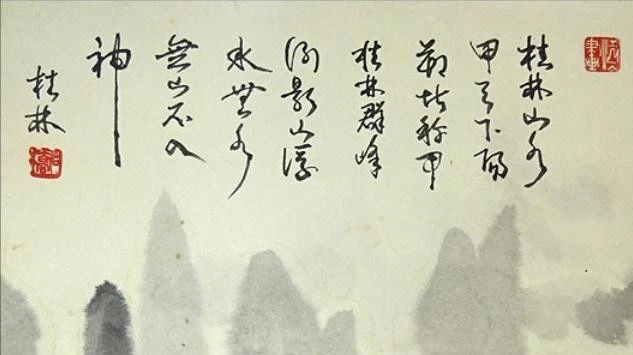 桂林山水
甲天下陽
朔堪称甲
桂林群峰
倒影山浮
水無水
無山不入
神
桂林